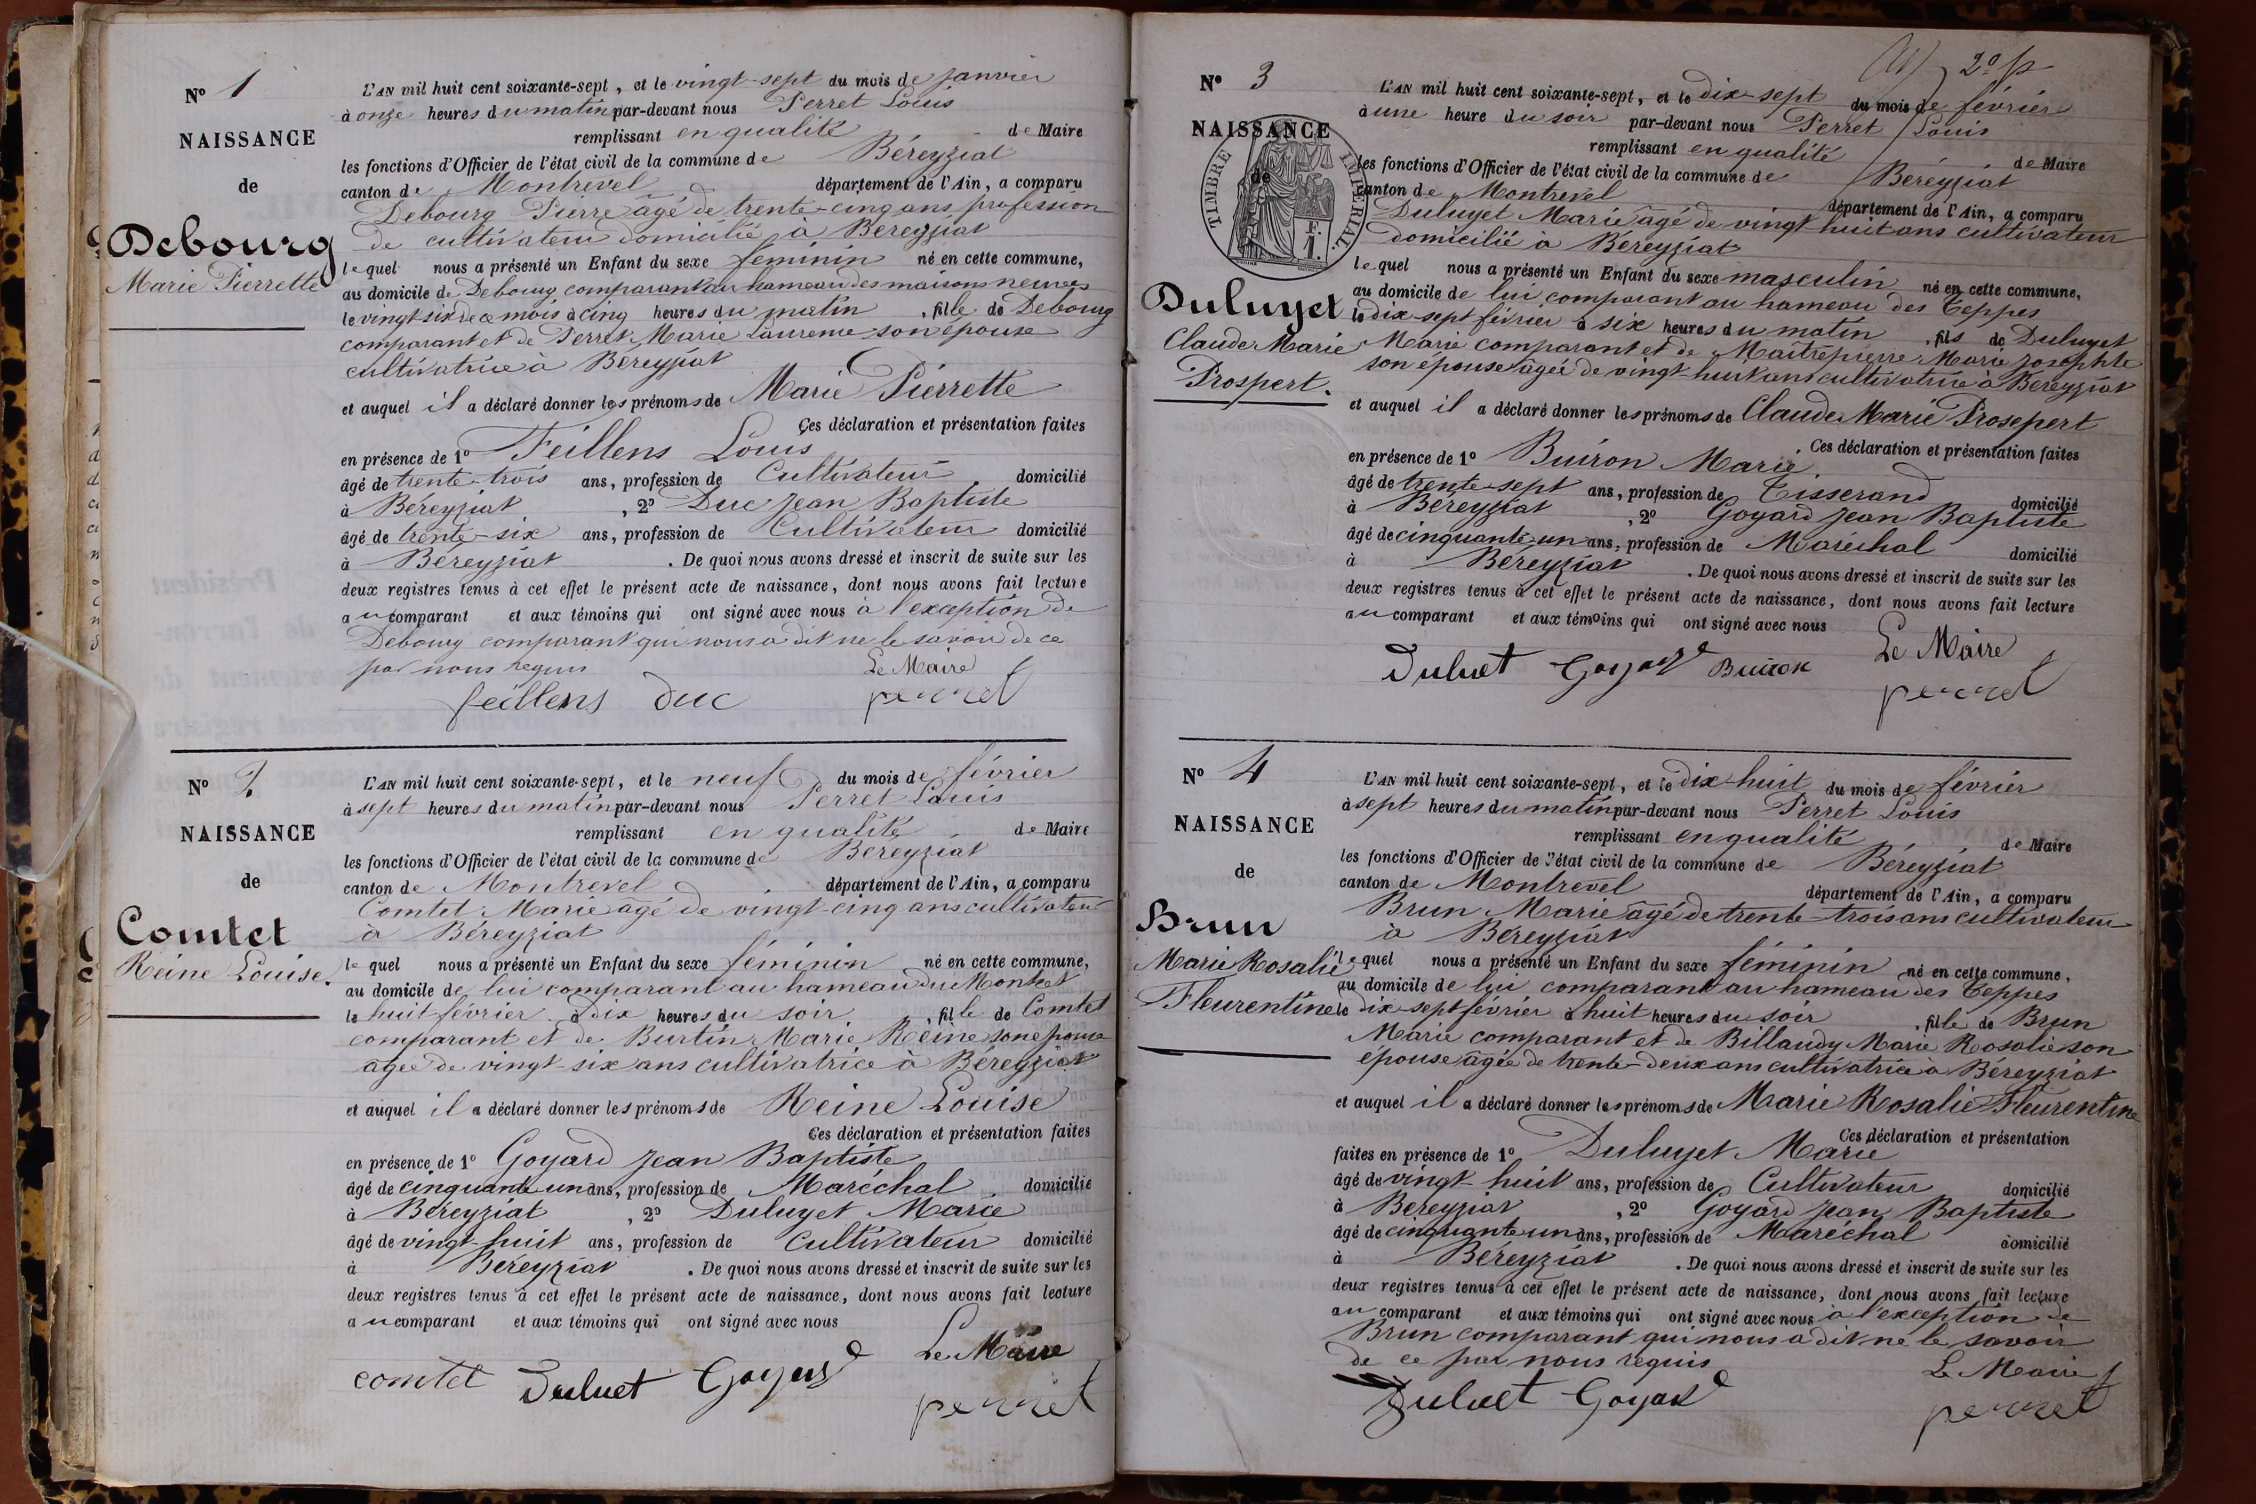 N° 1
NAISSANCE
de
Debourg
Marie Pierrette
L'AN mil huit cent soixante-sept, et le vingt-sept du mois de janvier
à onze heures du matin par-devant nous Perret Louis
remplissant en qualité de Maire
les fonctions d'Officier de l'état civil de la commune de Béreyziat
canton de Montrevel département de l'Ain, a comparu
Debourg Pierre âgé de trente-cinq ans profession
de cultivateur domicilié à Béreyziat
lequel nous a présenté un Enfant du sexe féminin né en cette commune,
au domicile de Debourg comparant au hameau des maisons neuves
le vingt six de ce mois à cinq heures du matin, fille de Debourg
comparant et de Perret Marie Laurence son épouse
cultivatrice à Béreyziat
et auquel il a déclaré donner les prénoms de Marie Pierrette
Ces déclaration et présentation faites
en présence de 1° Feillens Louis
âgé de trente-trois ans, profession de Cultivateur domicilié
à Béreyziat, 2° Duc Jean Baptiste
âgé de trente-six ans, profession de Cultivateur domicilié
à Béreyziat. De quoi nous avons dressé et inscrit de suite sur les
deux registres tenus à cet effet le présent acte de naissance, dont nous avons fait lecture
au comparant et aux témoins qui ont signé avec nous à l'exception de
Debourg comparant qui nous a dit ne le savoir de ce
par nous requis Le Maire
feillens duc perret
N° 2.
NAISSANCE
de
Comtet
Reine Louise.
L'AN mil huit cent soixante-sept, et le neuf du mois de février
à sept heures du matin par-devant nous Perret Louis
remplissant en qualité de Maire
les fonctions d'Officier de l'état civil de la commune de Béreyziat
canton de Montrevel département de l'Ain, a comparu
Comtet Marie âgé de vingt-cinq ans cultivateur
à Béreyziat
lequel nous a présenté un Enfant du sexe féminin né en cette commune,
au domicile de lui comparant au hameau du Montcet
le huit février à dix heures du soir, fille de Comtet
comparant et de Burtin Marie Reine son épouse
agée de vingt-six ans cultivatrice à Béreyziat
et auquel il a déclaré donner les prénoms de Reine Louise
Ces déclaration et présentation faites
en présence de 1° Goyard Jean Baptiste
âgé de cinquante un ans, profession de Maréchal domicilié
à Béreyziat, 2° Duluyet Marie
âgé de vingt-huit ans, profession de Cultivateur domicilié
à Béreyziat. De quoi nous avons dressé et inscrit de suite sur les
deux registres tenus à cet effet le présent acte de naissance, dont nous avons fait lecture
au comparant et aux témoins qui ont signé avec nous
Le Maire
comtet Duluet Goyard
perret
2° p
N° 3
NAISSANCE
de
TIMBRE IMPERIAL.
F.
1.
Duluyet
Claude Marie
Prospert.
L'AN mil huit cent soixante-sept, et le dix-sept du mois de février
à une heure du soir par-devant nous Perret Louis
remplissant en qualité de Maire
les fonctions d'Officier de l'état civil de la commune de Béréyziat
canton de Montrevel département de l'Ain, a comparu
Duluyet Marie âgé de vingt huit ans cultivateur
domicilié à Béreyziat
lequel nous a présenté un Enfant du sexe masculin né en cette commune,
au domicile de lui comparant au hameau des Teppes
le dix-sept février à six heures du matin, fils de Duluyet
Marie comparant et de Maîtrepierre Marie Josephte
son épouse âgée de vingt-huit ans cultivatrice à Béreyziat
et auquel il a déclaré donner les prénoms de Claude Marie Prosepert
Ces déclaration et présentation faites
en présence de 1° Buiron Marie
âgé de trente-sept ans, profession de Tisserand domicilié
à Béreyziat, 2° Goyard Jean Baptiste
âgé de cinquante-un ans, profession de Maréchal domicilié
à Béreyziat. De quoi nous avons dressé et inscrit de suite sur les
deux registres tenus à cet effet le présent acte de naissance, dont nous avons fait lecture
au comparant et aux témoins qui ont signé avec nous
Le Maire
Duluet Goyard Buiron
perret
N° 4
NAISSANCE
de
Brun
Marie Rosalie
Fleurentine
L'AN mil huit cent soixante-sept, et le dix-huit du mois de février
à sept heures du matin par-devant nous Perret Louis
remplissant en qualité de Maire
les fonctions d'Officier de l'état civil de la commune de Béreyziat
canton de Montrevel département de l'Ain, a comparu
Brun Marie âgé de trente-trois ans cultivateur
à Béreyziat
lequel nous a présenté un Enfant du sexe féminin né en cette commune,
au domicile de lui comparant au hameau des Teppes
le dix-sept février à huit heures du soir, fille de Brun
Marie comparant et de Billaudy Marie Rosalie son
épouse âgée de trente-deux ans cultivatrice à Béreyziat
et auquel il a déclaré donner les prénoms de Marie Rosalie Fleurentine
Ces déclaration et présentation
faites en présence de 1° Duluyet Marie
âgé de vingt-huit ans, profession de Cultivateur domicilié
à Béreyziat, 2° Goyard Jean Baptiste
âgé de cinquante un ans, profession de Maréchal domicilié
à Béreyziat. De quoi nous avons dressé et inscrit de suite sur les
deux registres tenus à cet effet le présent acte de naissance, dont nous avons fait lecture
au comparant et aux témoins qui ont signé avec nous à l'exception de
Brun comparant qui nous a dit ne le savoir
de ce par nous requis Le Maire
Duluet Goyard perret